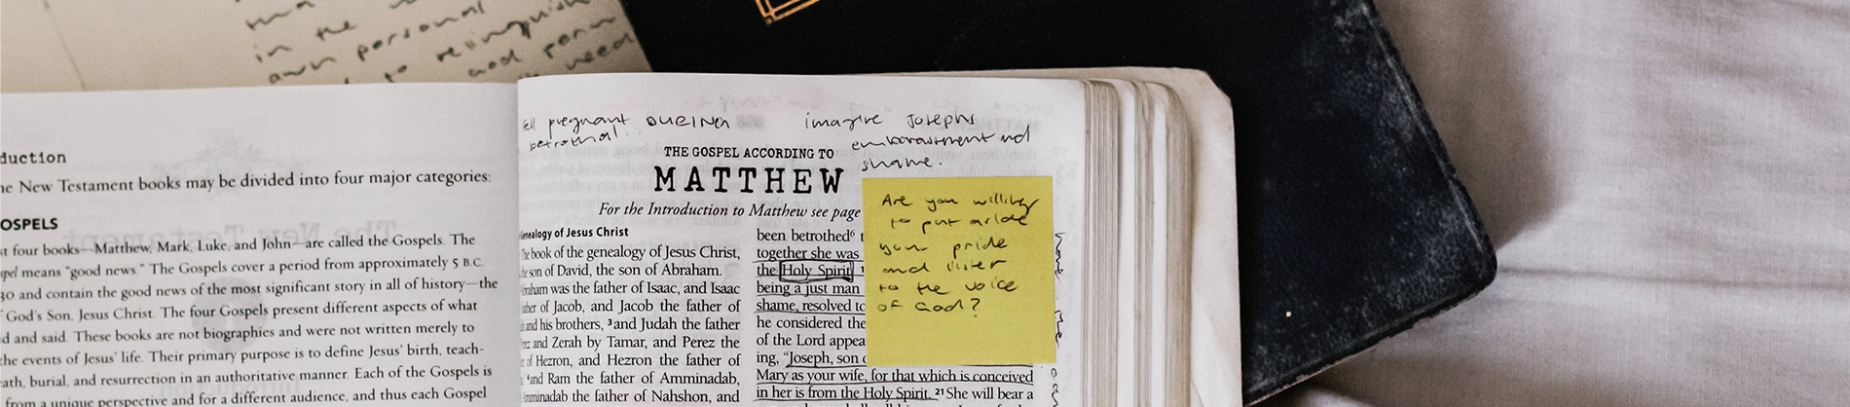 in the
own personal
to relinquish
and
need
pregnant DURING
betrothal.
imagine Josephs
embarassment and
shame.
duction
New Testament books may be divided into four major categories:
OSPELS
four books—Matthew, Mark, Luke, and John—are called the Gospels. The
means "good news." The Gospels cover a period from approximately 5 B.C.
30 and contain the good news of the most significant story in all of history—the
God's Son, Jesus Christ. The four Gospels present different aspects of what
d and said. These books are not biographies and were not written merely to
the events of Jesus' life. Their primary purpose is to define Jesus' birth, teach-
ath, burial, and resurrection in an authoritative manner. Each of the Gospels is
from a unique perspective and for a different audience, and thus each Gospel
THE GOSPEL ACCORDING TO
MATTHEW
For the Introduction to Matthew see page
enealogy of Jesus Christ
book of the genealogy of Jesus Christ,
son of David, the son of Abraham.
was the father of Isaac, and Isaac
of Jacob, and Jacob the father of
and his brothers, 3and Judah the father
and Zerah by Tamar, and Perez the
of Hezron, and Hezron the father of
4and Ram the father of Amminadab,
mminadab the father of Nahshon, and
been betrothed6
together she was
the Holy Spirit
being a just man
shame, resolved to
he considered the
of the Lord appea
ing, "Joseph, son
Mary as your wife, for that which is conceived
in her is from the Holy Spirit. 21 She will bear a
Are you willing
to put aside
your pride
and listen
to the voice
of God?